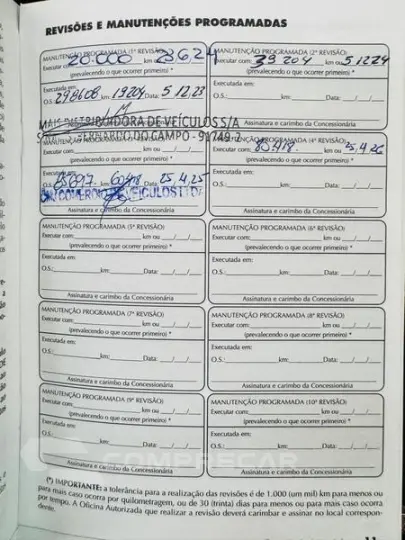 REVISÕES E MANUTENÇÕES PROGRAMADAS
MANUTENÇÃO PROGRAMADA (1ª REVISÃO)
Executar com: 20.000 km ou 23,6,24
(prevalecendo o que ocorrer primeiro) *
Executada em:
O.S.: 298608 km: 19204 Data: 5,12,23
DISTRIBUIDORA DE VEÍCULOS S/A
BERNARDO DO CAMPO - 91749-2
MANUTENÇÃO PROGRAMADA (2ª REVISÃO)
Executar com: 39204 km ou 5,12,24
(prevalecendo o que ocorrer primeiro) *
Executada em:
O.S.: km: Data: / /
km: 60418 Data: 25,4,25
Assinatura e carimbo da Concessionária
MANUTENÇÃO PROGRAMADA (4ª REVISÃO)
Executar com: 80418 km ou 25,4,26
(prevalecendo o que ocorrer primeiro) *
Executada em:
O.S.: km: Data: / /
Assinatura e carimbo da Concessionária
MANUTENÇÃO PROGRAMADA (5ª REVISÃO)
Executar com: km ou / /
(prevalecendo o que ocorrer primeiro) *
Executada em:
O.S.: km: Data: / /
Assinatura e carimbo da Concessionária
MANUTENÇÃO PROGRAMADA (6ª REVISÃO)
Executar com: km ou / /
(prevalecendo o que ocorrer primeiro) *
Executada em:
O.S.: km: Data: / /
Assinatura e carimbo da Concessionária
MANUTENÇÃO PROGRAMADA (7ª REVISÃO)
Executar com: km ou / /
(prevalecendo o que ocorrer primeiro) *
Executada em:
O.S.: km: Data: / /
Assinatura e carimbo da Concessionária
MANUTENÇÃO PROGRAMADA (8ª REVISÃO)
Executar com: km ou / /
(prevalecendo o que ocorrer primeiro) *
Executada em:
O.S.: km: Data: / /
Assinatura e carimbo da Concessionária
MANUTENÇÃO PROGRAMADA (9ª REVISÃO)
Executar com: km ou / /
(prevalecendo o que ocorrer primeiro) *
Executada em:
O.S.: km: Data: / /
Assinatura e carimbo da Concessionária
MANUTENÇÃO PROGRAMADA (10ª REVISÃO)
Executar com: km ou / /
(prevalecendo o que ocorrer primeiro) *
Executada em:
O.S.: km: Data: / /
Assinatura e carimbo da Concessionária
COMPRECAR
(*) IMPORTANTE: a tolerância para a realização das revisões é de 1.000 (um mil) km para menos ou
para mais caso ocorra por quilometragem, ou de 30 (trinta) dias para menos ou para mais caso ocorra
por tempo. A Oficina Autorizada que realizar a revisão deverá carimbar e assinar no local correspon-
dente.